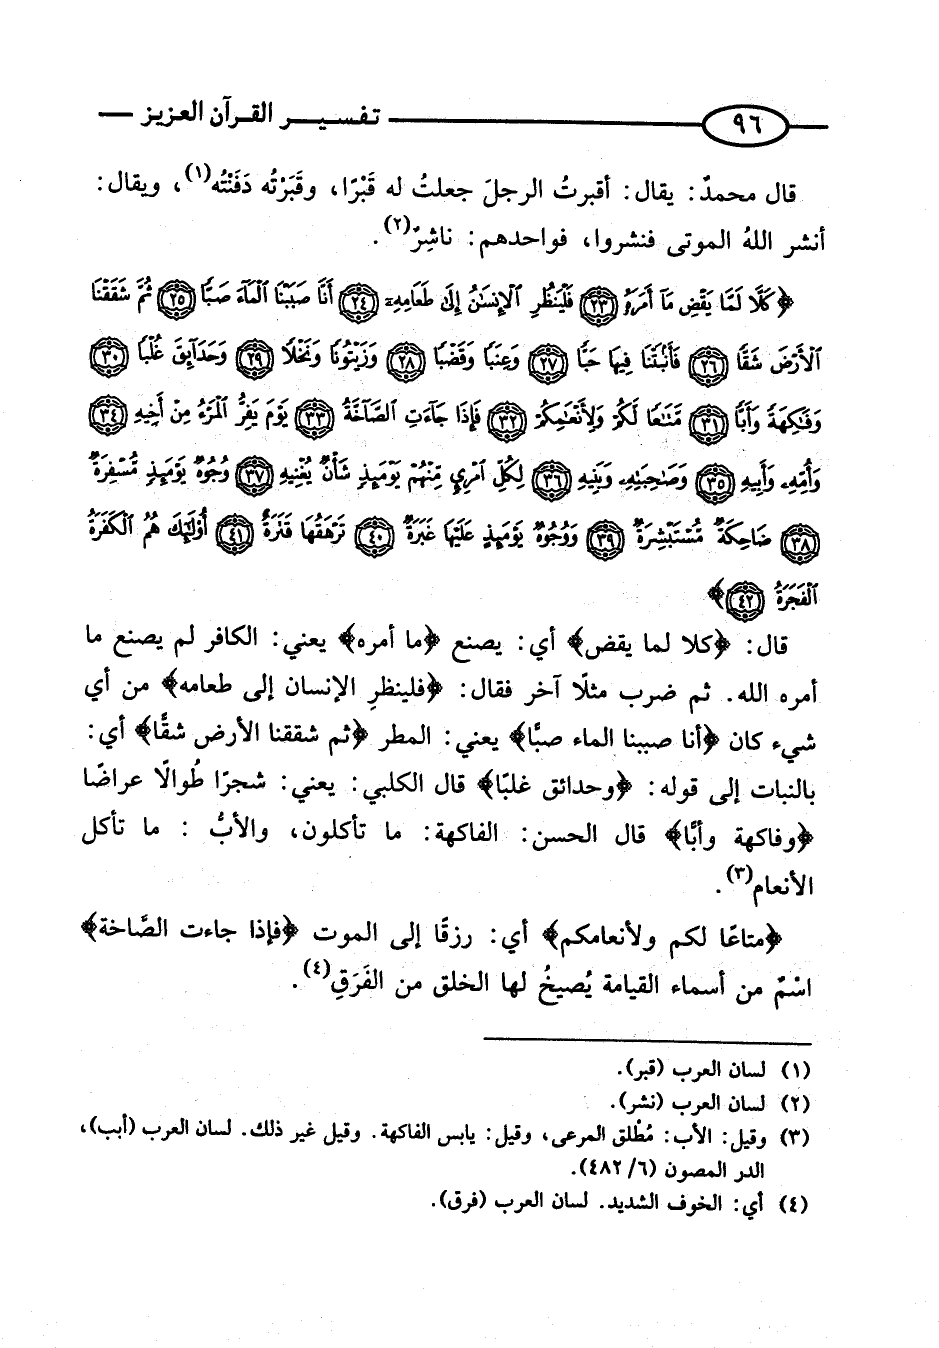 ٩٦ تفسير القرآن العزيز
قال محمدٌ: يقال: أقبرتُ الرجلَ جعلتُ له قَبْرًا، وقَبَرْتُه دَفَنْتُه(١)، ويقال:
أنشر اللهُ الموتى فنشروا، فواحدهم: ناشِرٌ(٢).
﴿كَلَّا لَمَّا يَقْضِ مَآ أَمَرَهُۥ ٢٣ فَلْيَنظُرِ ٱلْإِنسَٰنُ إِلَىٰ طَعَامِهِۦٓ ٢٤ أَنَّا صَبَبْنَا ٱلْمَآءَ صَبًّا ٢٥ ثُمَّ شَقَقْنَا
ٱلْأَرْضَ شَقًّا ٢٦ فَأَنۢبَتْنَا فِيهَا حَبًّا ٢٧ وَعِنَبًا وَقَضْبًا ٢٨ وَزَيْتُونًا وَنَخْلًا ٢٩ وَحَدَآئِقَ غُلْبًا ٣٠
وَفَٰكِهَةً وَأَبًّا ٣١ مَّتَٰعًا لَّكُمْ وَلِأَنْعَٰمِكُمْ ٣٢ فَإِذَا جَآءَتِ ٱلصَّآخَّةُ ٣٣ يَوْمَ يَفِرُّ ٱلْمَرْءُ مِنْ أَخِيهِ ٣٤
وَأُمِّهِۦ وَأَبِيهِ ٣٥ وَصَٰحِبَتِهِۦ وَبَنِيهِ ٣٦ لِكُلِّ ٱمْرِئٍ مِّنْهُمْ يَوْمَئِذٍ شَأْنٌ يُغْنِيهِ ٣٧ وُجُوهٌ يَوْمَئِذٍ مُّسْفِرَةٌ
٣٨ ضَاحِكَةٌ مُّسْتَبْشِرَةٌ ٣٩ وَوُجُوهٌ يَوْمَئِذٍ عَلَيْهَا غَبَرَةٌ ٤٠ تَرْهَقُهَا قَتَرَةٌ ٤١ أُو۟لَٰٓئِكَ هُمُ ٱلْكَفَرَةُ
ٱلْفَجَرَةُ ٤٢﴾
قال: ﴿كلا لما يقض﴾ أي: يصنع ﴿ما أمره﴾ يعني: الكافر لم يصنع ما
أمره الله. ثم ضرب مثلًا آخر فقال: ﴿فلينظرِ الإنسان إلى طعامه﴾ من أي
شيء كان ﴿أنا صببنا الماء صبًّا﴾ يعني: المطر ﴿ثم شققنا الأرض شقًّا﴾ أي:
بالنبات إلى قوله: ﴿وحدائق غلبًا﴾ قال الكلبي: يعني: شجرًا طُوالًا عراضًا
﴿وفاكهة وأبًّا﴾ قال الحسن: الفاكهة: ما تأكلون، والأبُّ : ما تأكل
الأنعام(٣).
﴿متاعًا لكم ولأنعامكم﴾ أي: رزقًا إلى الموت ﴿فإذا جاءت الصَّاخة﴾
اسْمٌ من أسماء القيامة يُصيخُ لها الخلق من الفَرَقِ(٤).
(١) لسان العرب (قبر).
(٢) لسان العرب (نشر).
(٣) وقيل: الأب: مُطْلق المرعى، وقيل: يابس الفاكهة. وقيل غير ذلك. لسان العرب (أبب)،
الدر المصون (٦/ ٤٨٢).
(٤) أي: الخوف الشديد. لسان العرب (فرق).